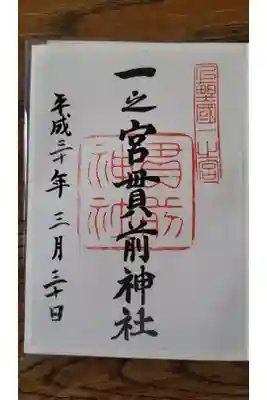 上野國一之宮
一之宮貫前神社
貫前
神社
平成三十年三月三十日